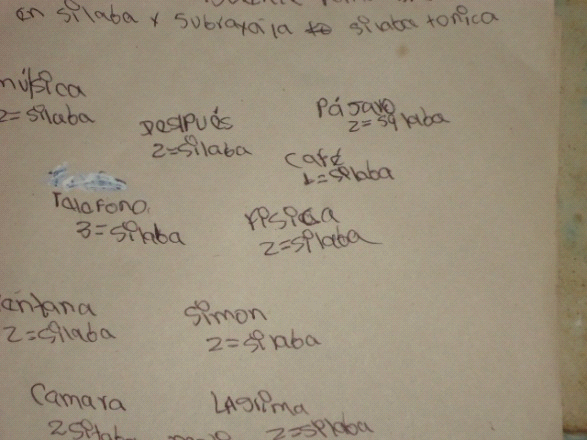 en silaba y subraya la silaba tonica
música
2=silaba
Despues
2=silaba
Pájaro
2=silaba
Café
1=silaba
Talafono
3=silaba
Fisica
2=silaba
ventana
2=silaba
simon
2=silaba
Camara
2 silaba
LAgrima
2=silaba